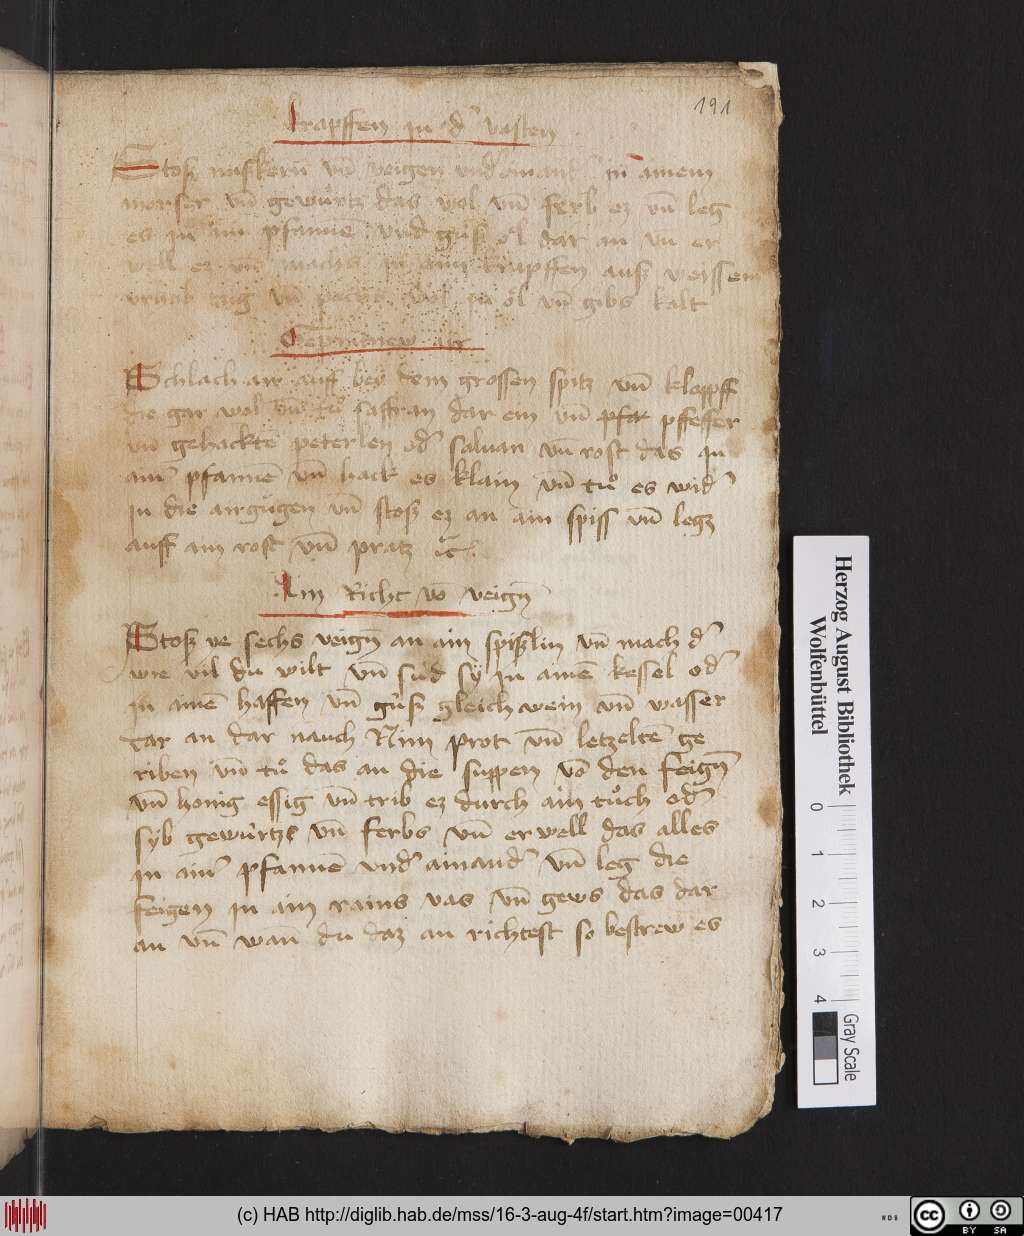 191
krapffen in d' vasten
Stosz nuszkern vn̄ veigen vnd'ainand' in ainem
morser vn̄ gewürtz das wol vn̄ ferb ez vn̄ leg
es in ain pfanne vnd güsz öl dar an vn̄ er
well ez vn̄ machs in ain krapffen ausz weissem
vrhab taig vn̄ pachs wol in öl vn̄ gibs kalt
air
Schlach air auff bey dem grossen spitz vn̄ klopff
die gar wol vn̄ tů saffran dar ein vn̄ pfeffer
vn̄ gehackte peterlen od' saluan vn̄ rost das in
ain' pfannē vn̄ hack es klain vn̄ tů es wid'
in die air vn̄ stosz ez an ain spiss vn̄ legz
auff ain rost vn̄ pratz
Ain Richt vō veign̄
Stosz ye sechs veign̄ an ain spiszlin vn̄ mach d'
wie vil du wilt vn̄ sud sy in ainē kessel od'
in ainē haffen vn̄ güsz gleich wein vn̄ wasser
dar an dar nauch Nim prot vn̄ letzeltē ge
riben vn̄ tů das an die suppen vō den feign̄
vn̄ honig essig vn̄ trib ez durch ain tůch od'
syb gewürtzs vn̄ ferbs vn̄ erwell das alles
in ain' pfannē vnd' ainand' vn̄ leg die
feigen in ain rains vas vn̄ gews das dar
an vn̄ wan̄ du daz an richtest so bestrew es
Herzog August Bibliothek
Wolfenbüttel
0 1 2 3 4
Gray Scale
(c) HAB http://diglib.hab.de/mss/16-3-aug-4f/start.htm?image=00417
cc BY SA